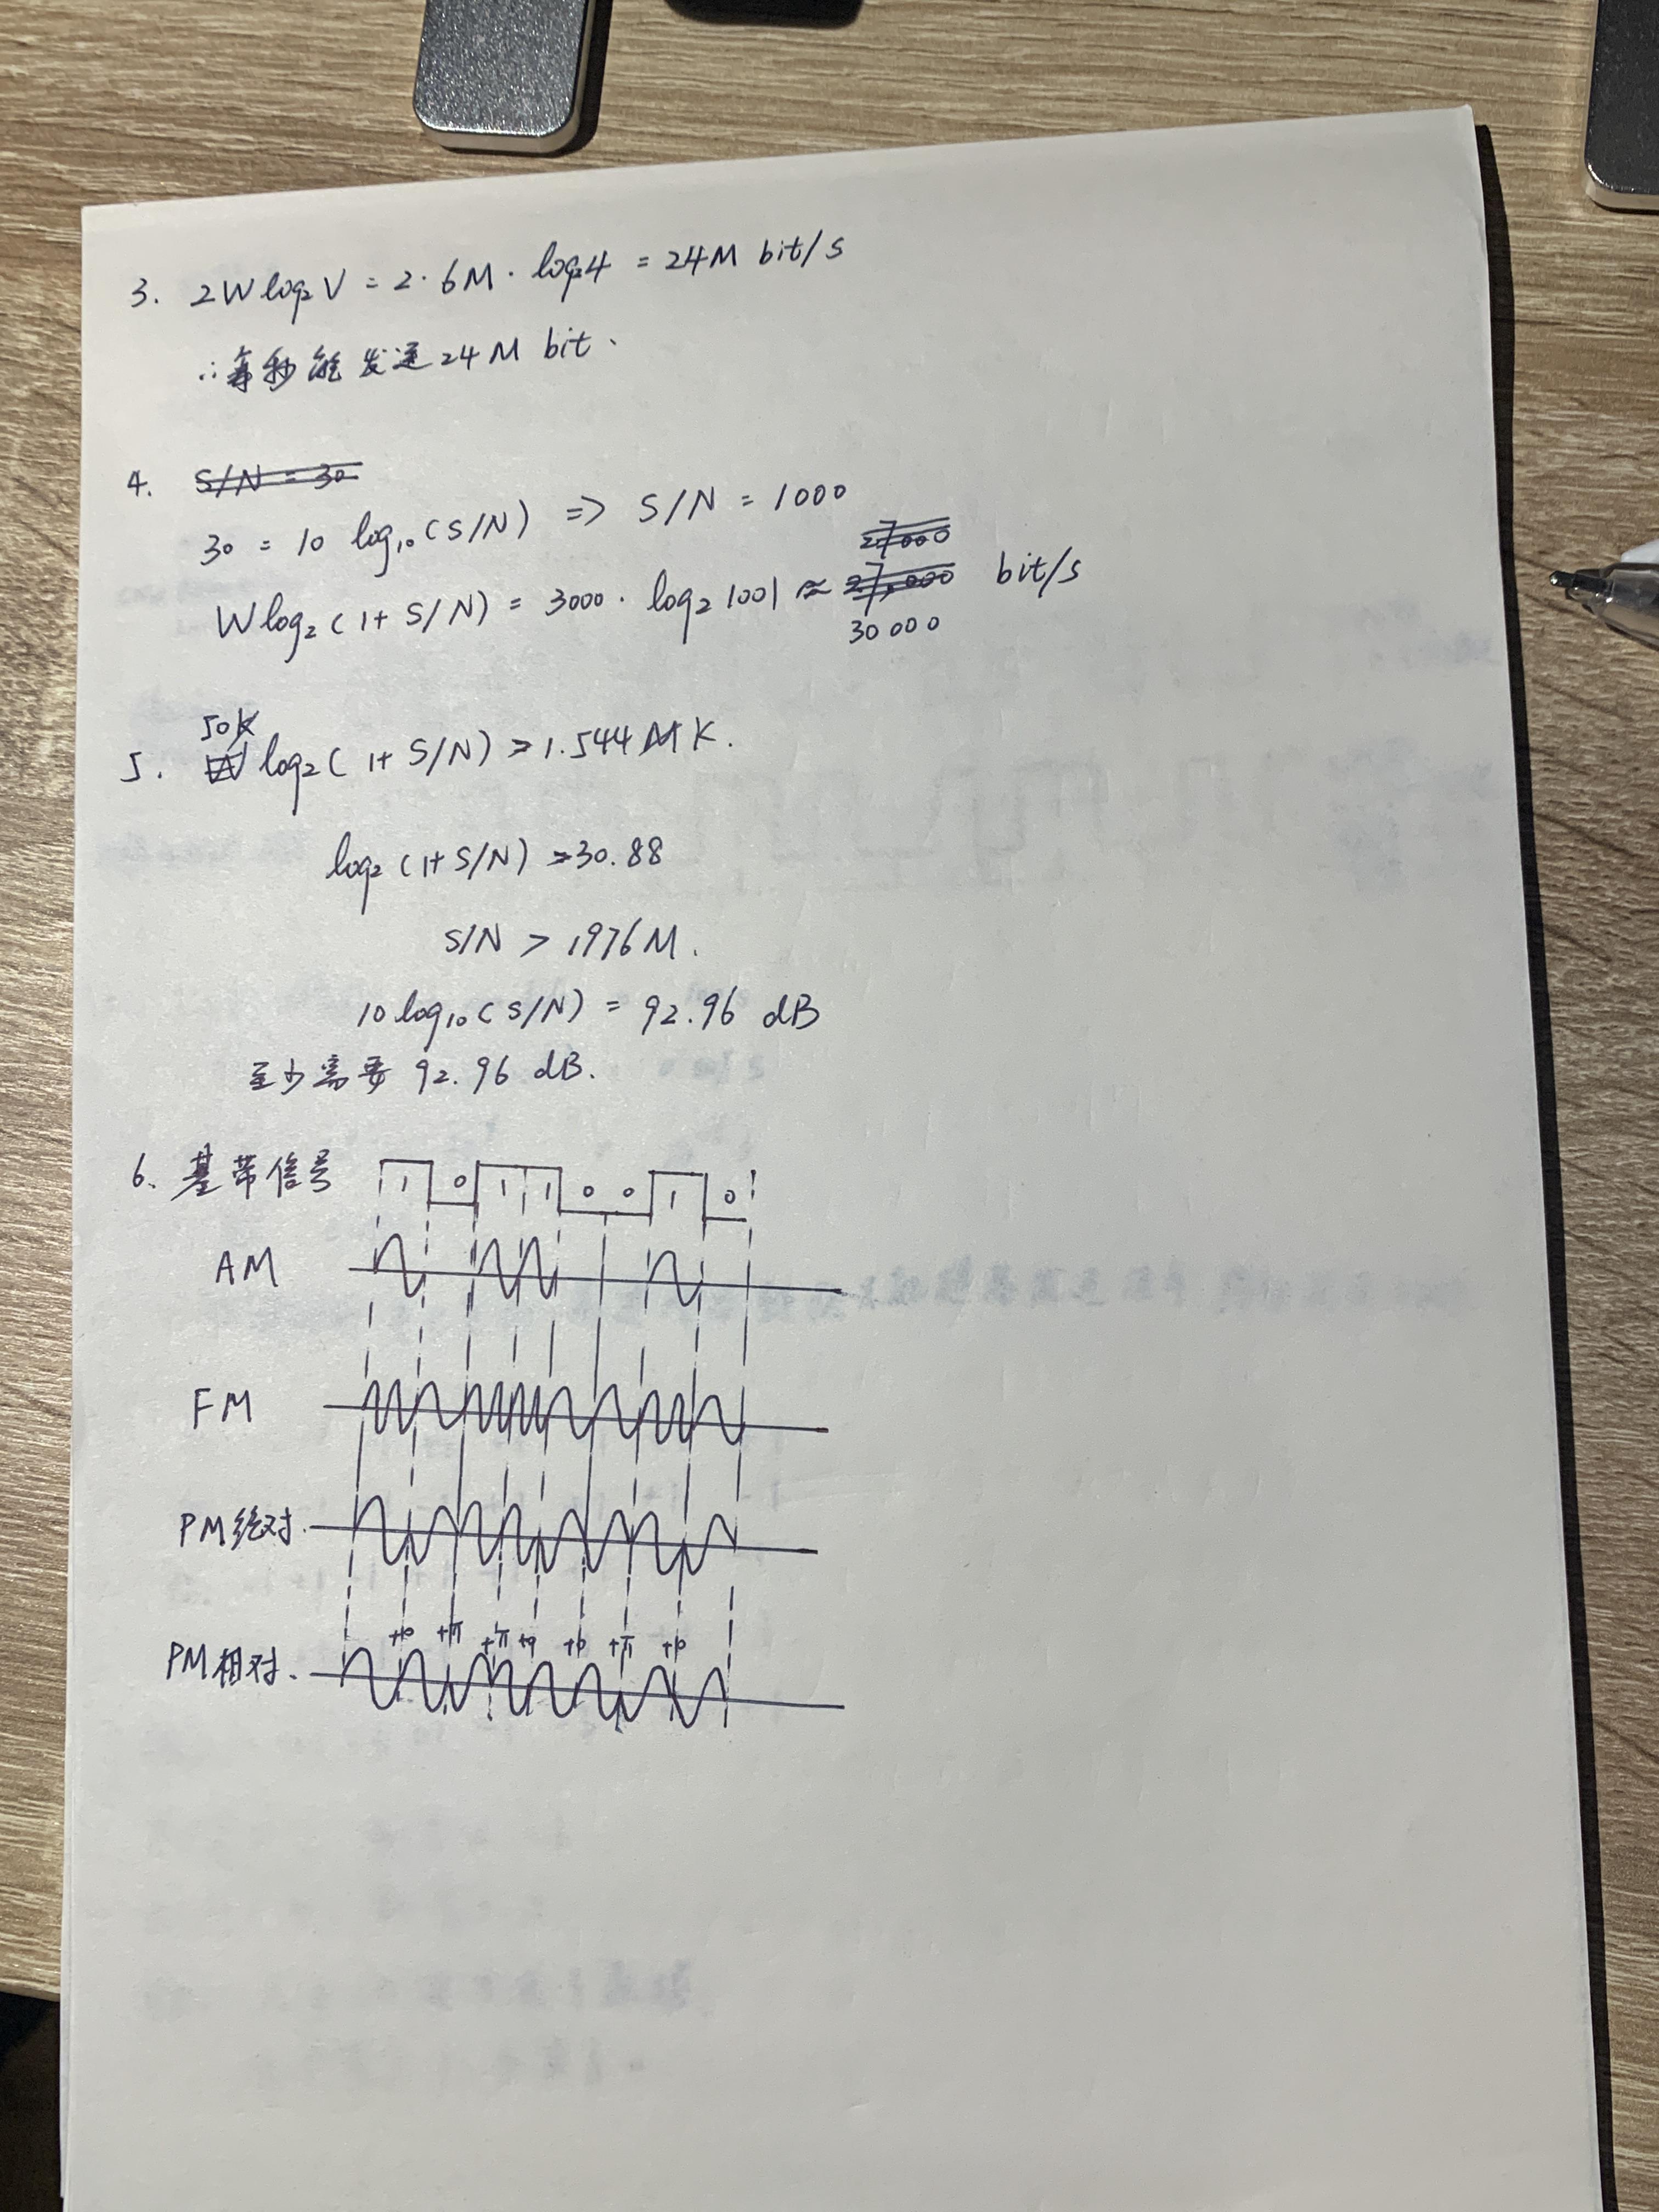 3. 2W log₂ V = 2·6M·log₂4 = 24M bit/s
∴ 每秒能发送24M bit.
4. S/N = 30
30 = 10 log₁₀(S/N) => S/N = 1000
27000
W log₂(1+S/N) = 3000·log₂1001 ≈ 27,000 bit/s
30000
50K
5. W log₂(1+S/N) > 1.544M K.
log₂(1+S/N) > 30.88
S/N > 1976M.
10 log₁₀(S/N) = 92.96 dB
至少需要 92.96 dB.
6. 基带信号 1 0 1 1 0 0 1 0
AM
FM
PM绝对.
+0 +π +π +0 +0 +π +0
PM相对.